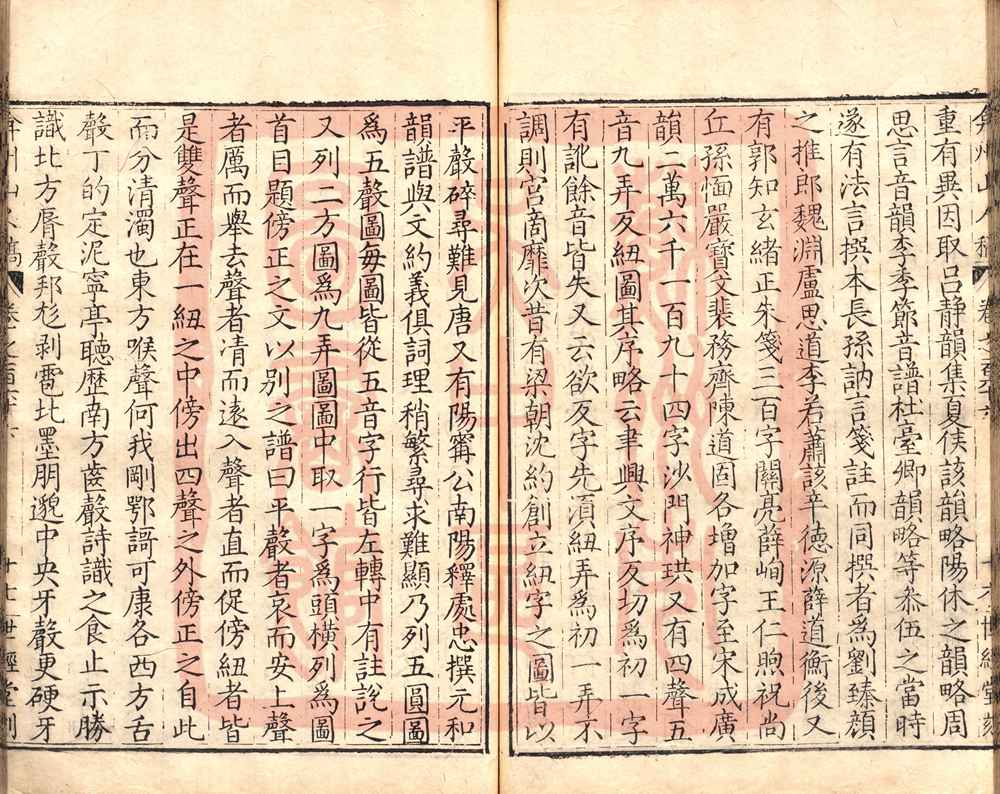 重有異因取呂静韻集夏侯該韻略陽休之韻略周
思言音韻李季節音譜杜臺卿韻略等叅伍之當時
遂有法言撰本長孫訥言箋註而同撰者爲劉臻顔
之推郎魏淵盧思道李若蕭該辛德源薛道衡後又
有郭知玄緒正朱箋三百字關亮薛峋王仁煦祝尚
丘孫愐嚴寶文裴務齊陳道固各增加字至宋成廣
韻二萬六千一百九十四字沙門神珙又有四聲五
音九弄反紐圖其序略云聿興文序反切爲初一字
有訛餘音皆失又云欲反字先須紐弄爲初一弄不
調則宮商靡次昔有梁朝沈約創立紐字之圖皆以
平聲碎尋難見唐又有陽甯公南陽釋處忠撰元和
韻譜與文約義俱詞理稍繁尋求難顯乃列五圓圖
爲五聲圖每圖皆從五音字行皆左轉中有註說之
又列二方圖爲九弄圖圖中取一字爲頭橫列爲圖
首目題傍正之文以别之譜曰平聲者哀而安上聲
者厲而舉去聲者清而遠入聲者直而促傍紐者皆
是雙聲正在一紐之中傍出四聲之外傍正之自此
而分清濁也東方喉聲何我剛鄂謌可康各西方舌
聲丁的定泥寧亭聽歷南方齒聲詩識之食止示勝
識北方脣聲邦尨剥雹北墨朋邈中央牙聲更硬牙